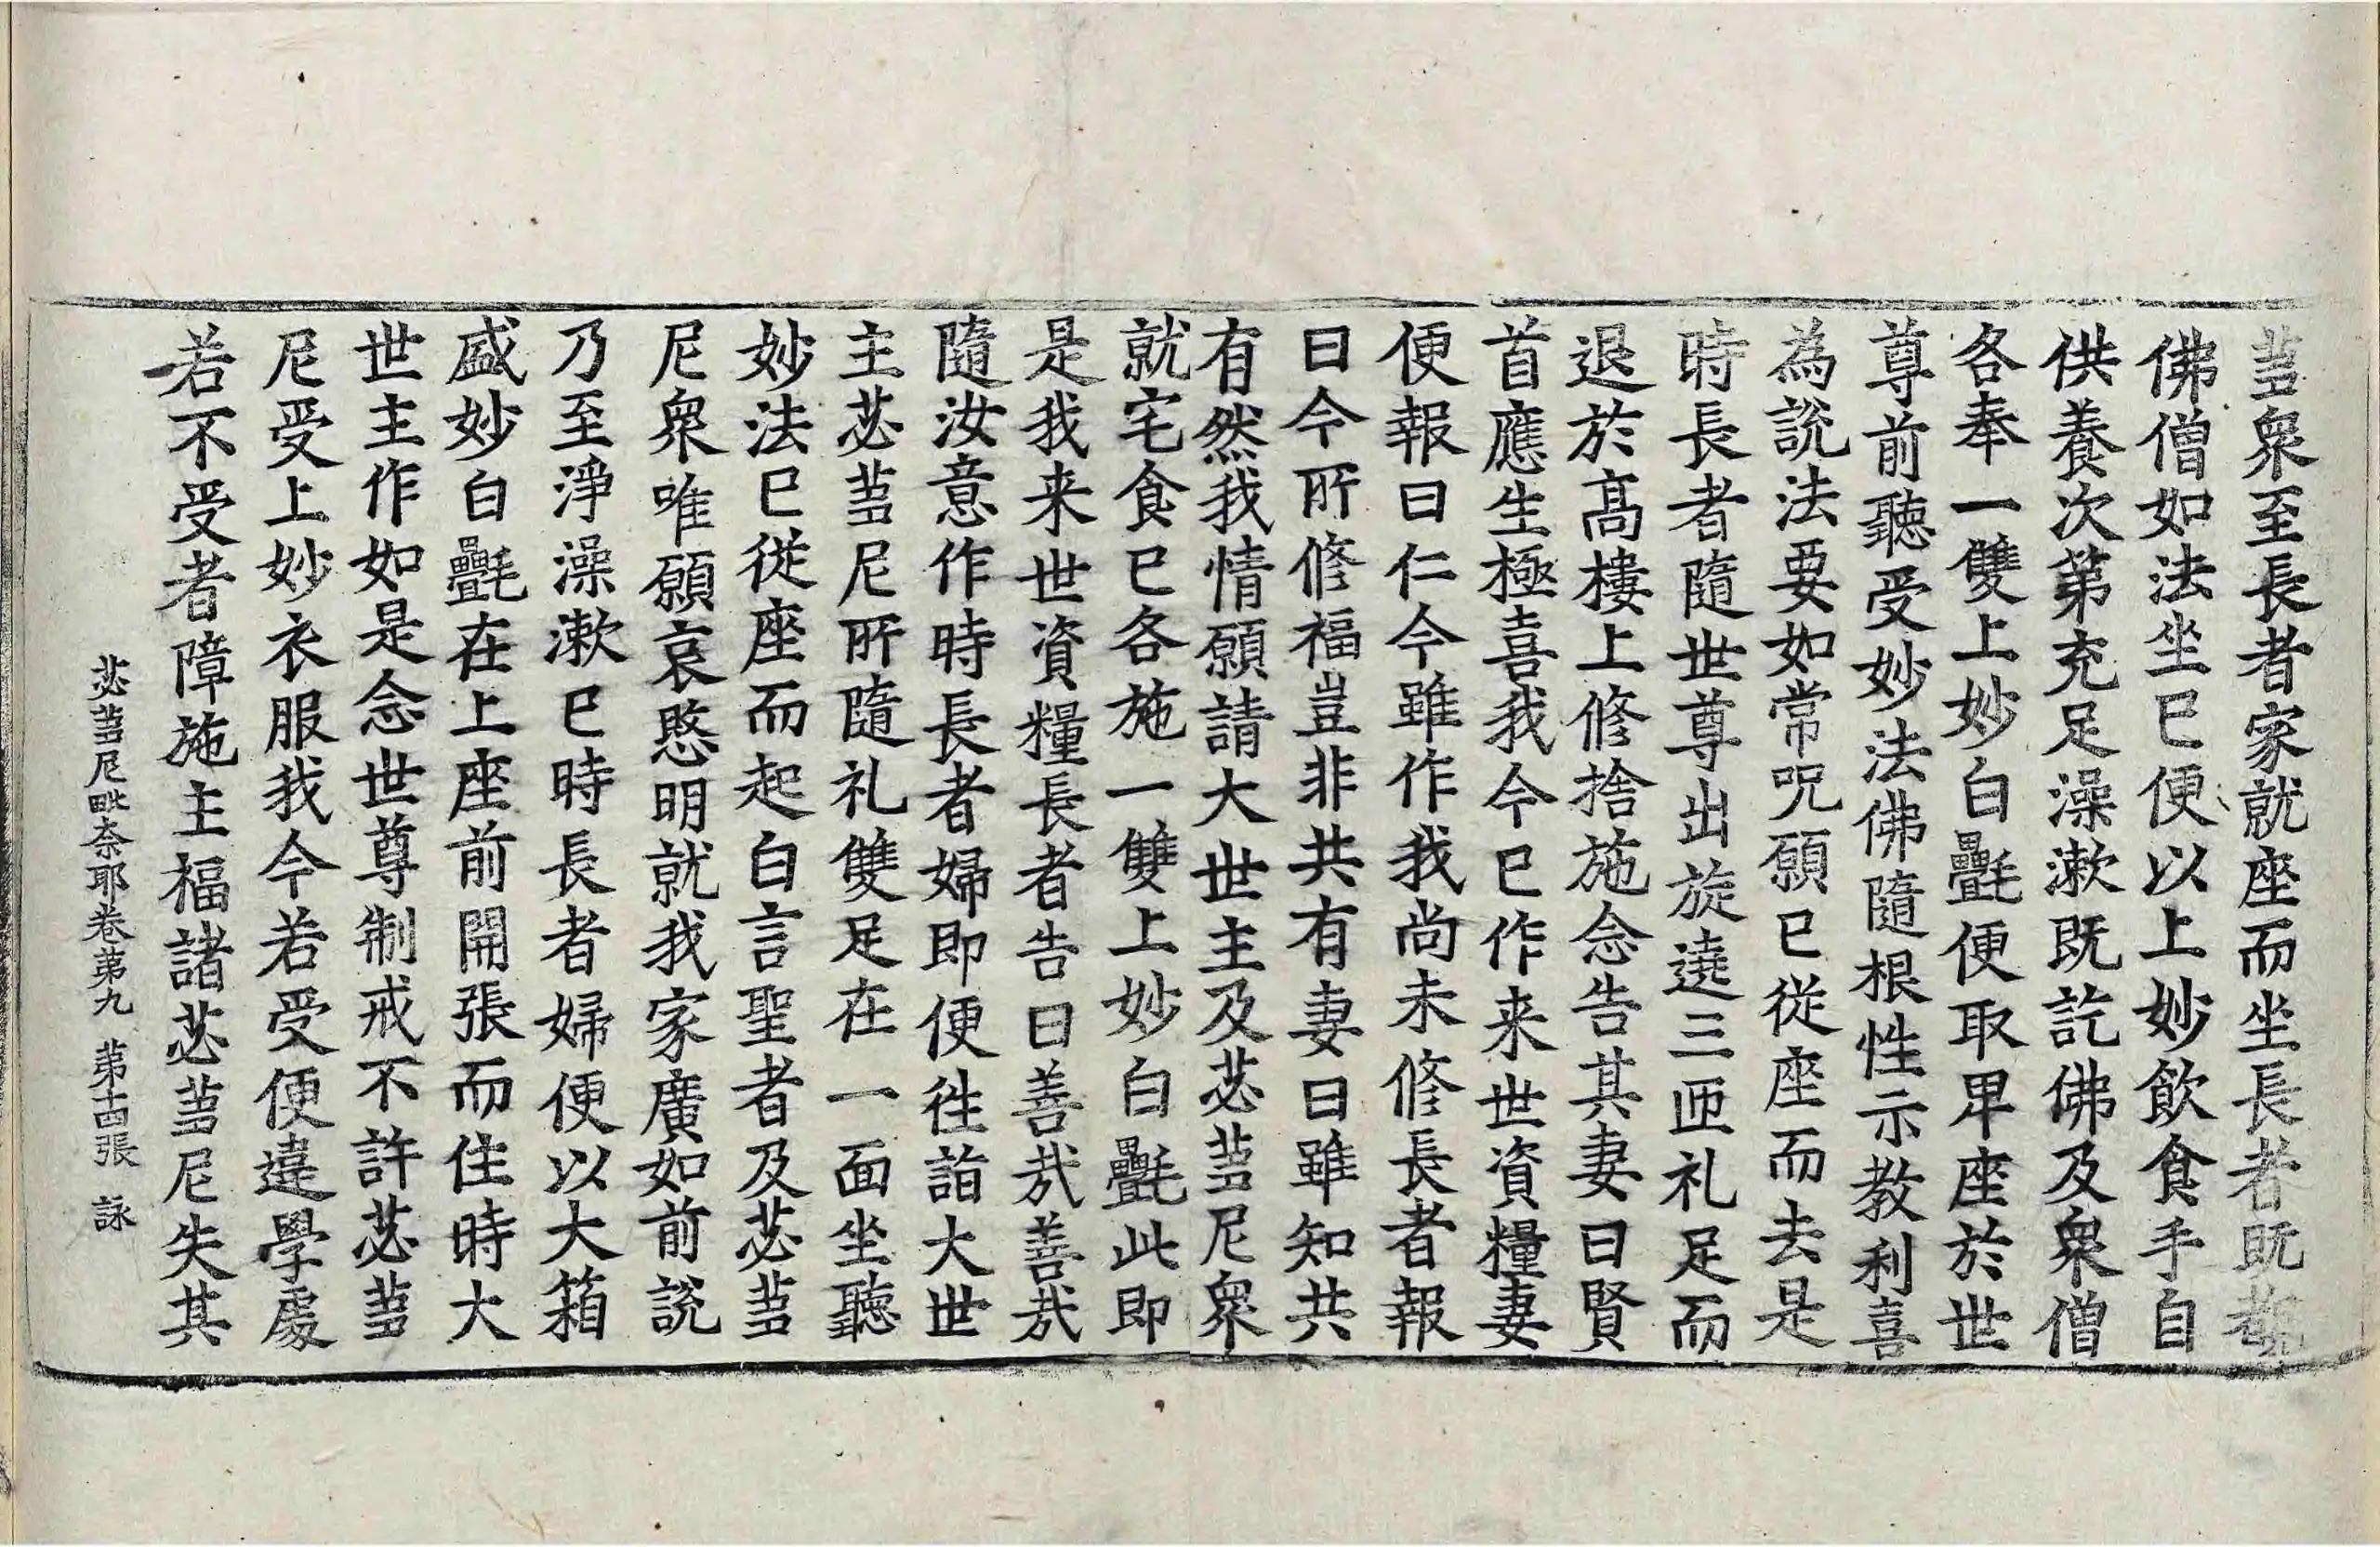 蒭衆至長者家就座而坐長者既
佛僧如法坐已便以上妙飲食手自
供養次第充足澡漱既訖佛及衆僧
各奉一雙上妙白㲲便取卑座於世
尊前聽受妙法佛隨根性示教利喜
為說法要如常呪願已從座而去是
時長者隨世尊出旋遶三匝礼足而
退於髙樓上修捨施念告其妻曰賢
首應生極喜我今已作来世資糧妻
便報曰仁今雖作我尚未修長者報
曰今所修福豈非共有妻曰雖知共
有然我情願請大世主及苾蒭尼衆
就宅食已各施一雙上妙白㲲此即
是我来世資糧長者告曰善㢤善㢤
隨汝意作時長者婦即便往詣大世
主苾蒭尼所隨礼雙足在一面坐聽
妙法已從座而起白言聖者及苾蒭
尼衆唯願哀愍明就我家廣如前說
乃至淨澡漱已時長者婦便以大箱
盛妙白㲲在上座前開張而住時大
世主作如是念世尊制戒不許苾蒭
尼受上妙衣服我今若受便違學處
若不受者障施主福諸苾蒭尼失其
苾蒭尼毗奈耶卷第九 第十四張 詠